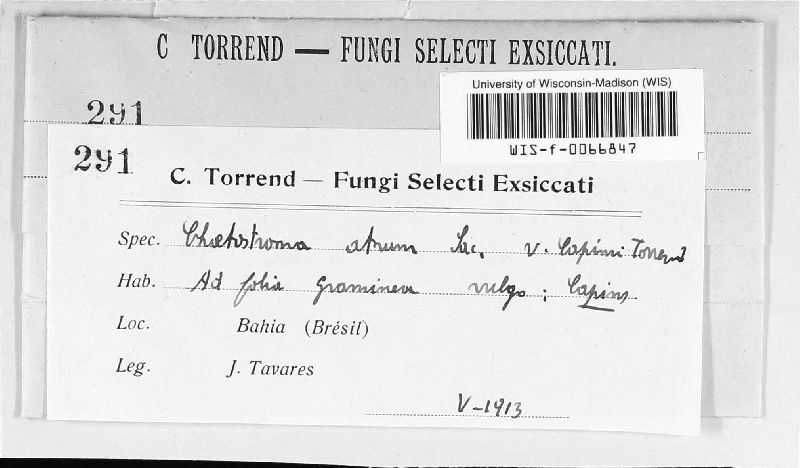 C TORREND — FUNGI SELECTI EXSICCATI.
University of Wisconsin-Madison (WIS)
WIS-f-0066847
291
291
C. Torrend — Fungi Selecti Exsiccati
Spec. Chætostroma atrum Sac. v. Capini Torrend
Hab. Ad folia Graminea vulgo: Capins
Loc. Bahia (Brésil)
Leg. J. Tavares
V-1913